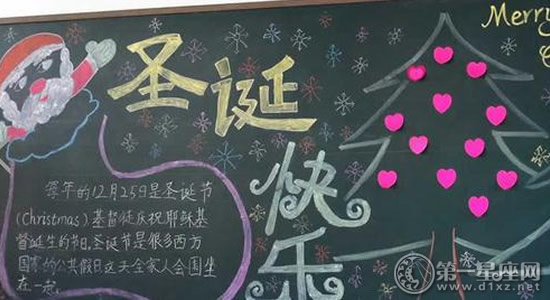 圣诞
快乐
Merry
C
每年的12月25日是圣诞节
(Christmas)基督徒庆祝耶稣基
督诞生的节日,圣诞节是很多西方
国家的公共假日这天全家人会围坐
在一起。
第一星座网
www.d1xz.net